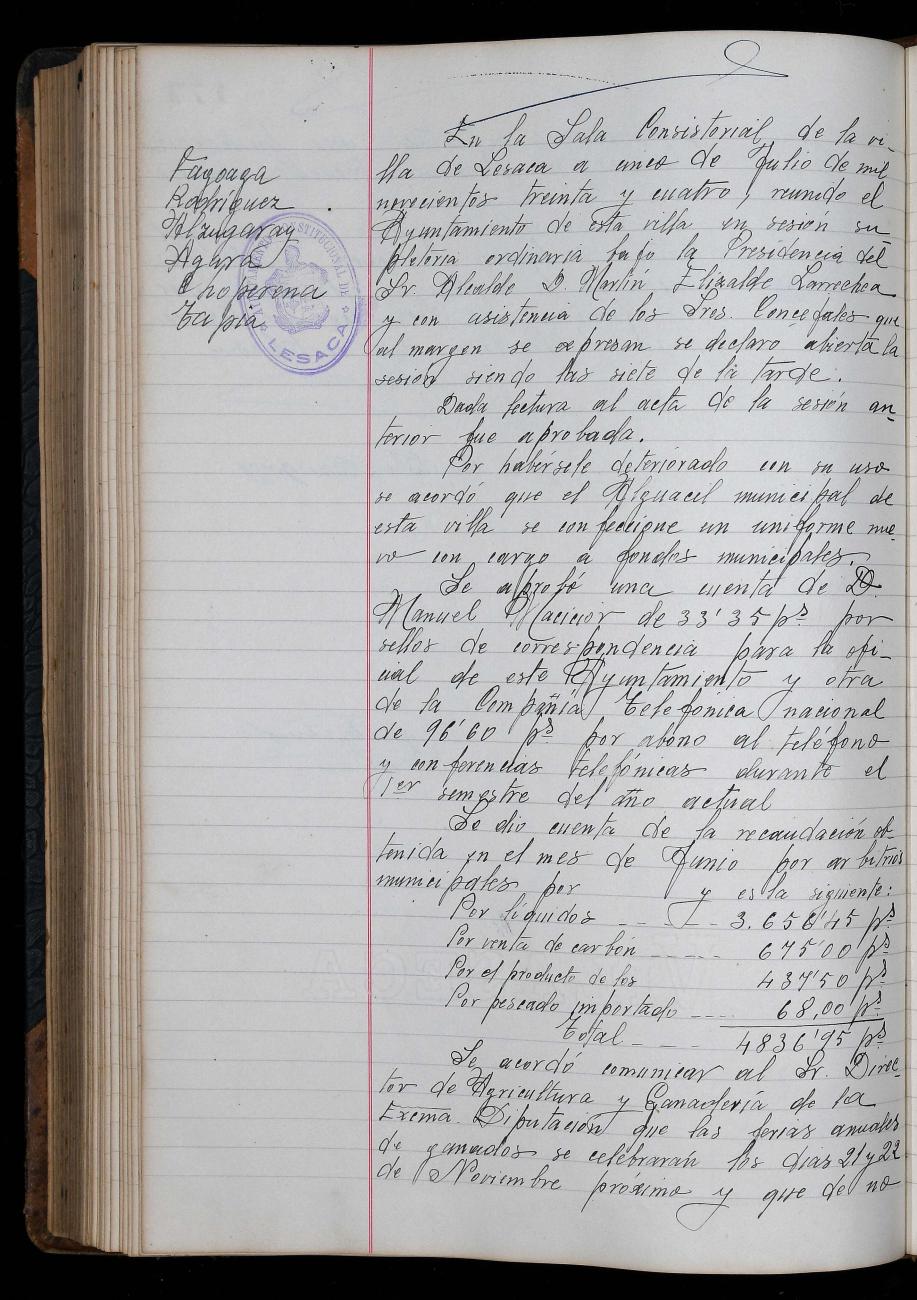 Fagoaga
Rodríguez
Telzugaray
Agara
Choperena
Tapia
LESACA
En la Sala Consistorial de la vi-
lla de Lesaca a cinco de Julio de mil
novecientos treinta y cuatro, reunido el
Ayuntamiento de esta villa en sesión su
pletoria ordinaria bajo la Presidencia del
Sr. Alcalde D. Martín Elizalde Larrechea
y con asistencia de los Sres. Concejales que
al margen se expresan se declaró abierta la
sesión siendo las siete de la tarde.
Dada lectura al acta de la sesión an-
terior fue aprobada.
Por habérsele deteriorado con su uso
se acordó que el Alguacil municipal de
esta villa se confeccione un uniforme nue-
vo con cargo a fondos municipales.
Se aprobó una cuenta de D.
Manuel Macicior de 33'35 pts por
sellos de correspondencia para la ofi-
cial de este Ayuntamiento y otra
de la Compañía Telefónica nacional
de 96'60 pts por abono al teléfono
y conferencias telefónicas durante el
1er semestre del año actual
Se dio cuenta de la recaudación ob-
tenida en el mes de Junio por arbitrios
municipales por y es la siguiente:
Por líquidos ---- 3.656'45 pts
Por venta de carbón ----- 675'00 pts
Por el producto de los 437'50 pts
Por pescado importado ---- 68,00 pts
Total ---- 4836'95 pts
Se acordó comunicar al Sr. Direc-
tor de Agricultura y Ganadería de la
Excma Diputación que las ferias anuales
de ganados se celebrarán los dias 21 y 22
de Noviembre proximo y que de no